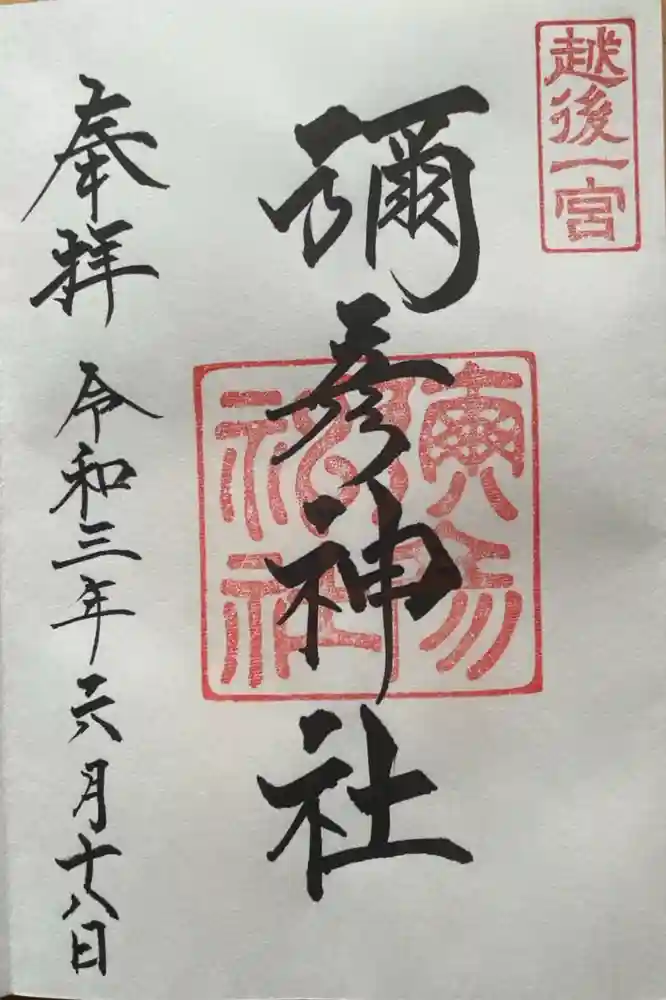 越後一宮
彌彦神社
奉拝 令和三年六月十八日